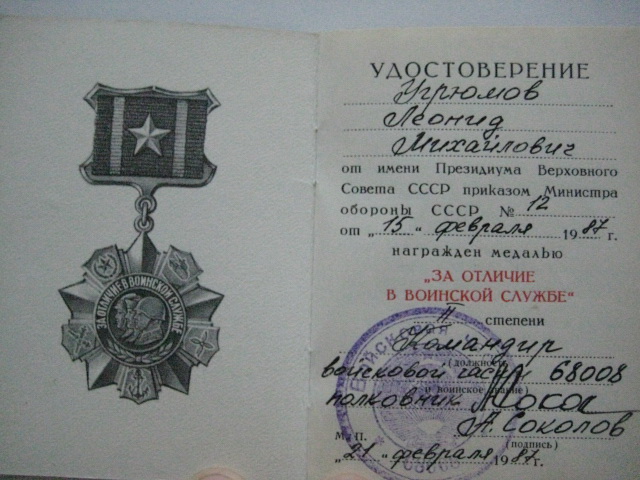 ЗА ОТЛИЧИЕ В ВОИНСКОЙ СЛУЖБЕ
УДОСТОВЕРЕНИЕ
Угрюмов
Леонид
Михайлович
от имени Президиума Верховного
Совета СССР приказом Министра
обороны СССР № 12
от „15" февраля 1987 г.
награжден медалью
„ЗА ОТЛИЧИЕ
В ВОИНСКОЙ СЛУЖБЕ"
II степени
Командир
(должность,
войсковой части 68008
воинское звание)
полковник
А. Соколов
М. П. (подпись)
„21" февраля 1987 г.